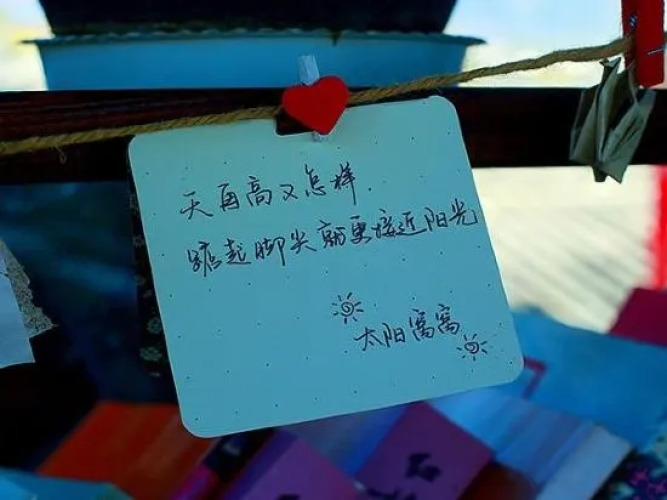 天再高又怎样.
踮起脚尖就更接近阳光
太阳窝窝